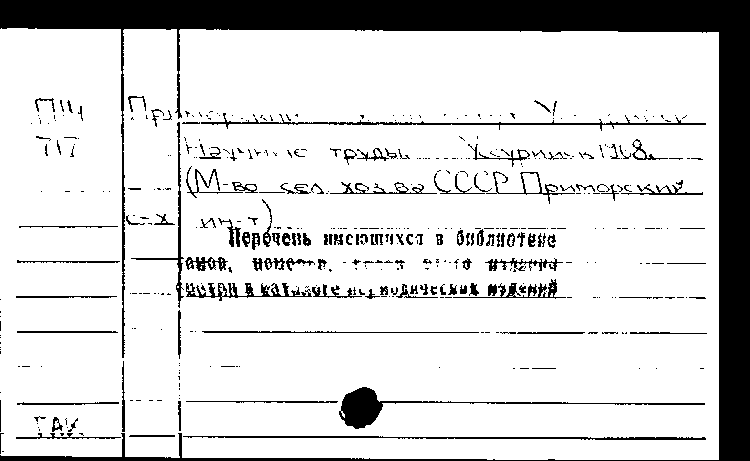 П14 Приморский
717 Научные труды. Уссурийск 1968.
(М-во сел. хоз-ва СССР Приморский
с-х ин-т)
Перечень имеющихся в библиотеке
томов, номеров, этого издания
смотри в каталоге периодических изданий
ГАК.